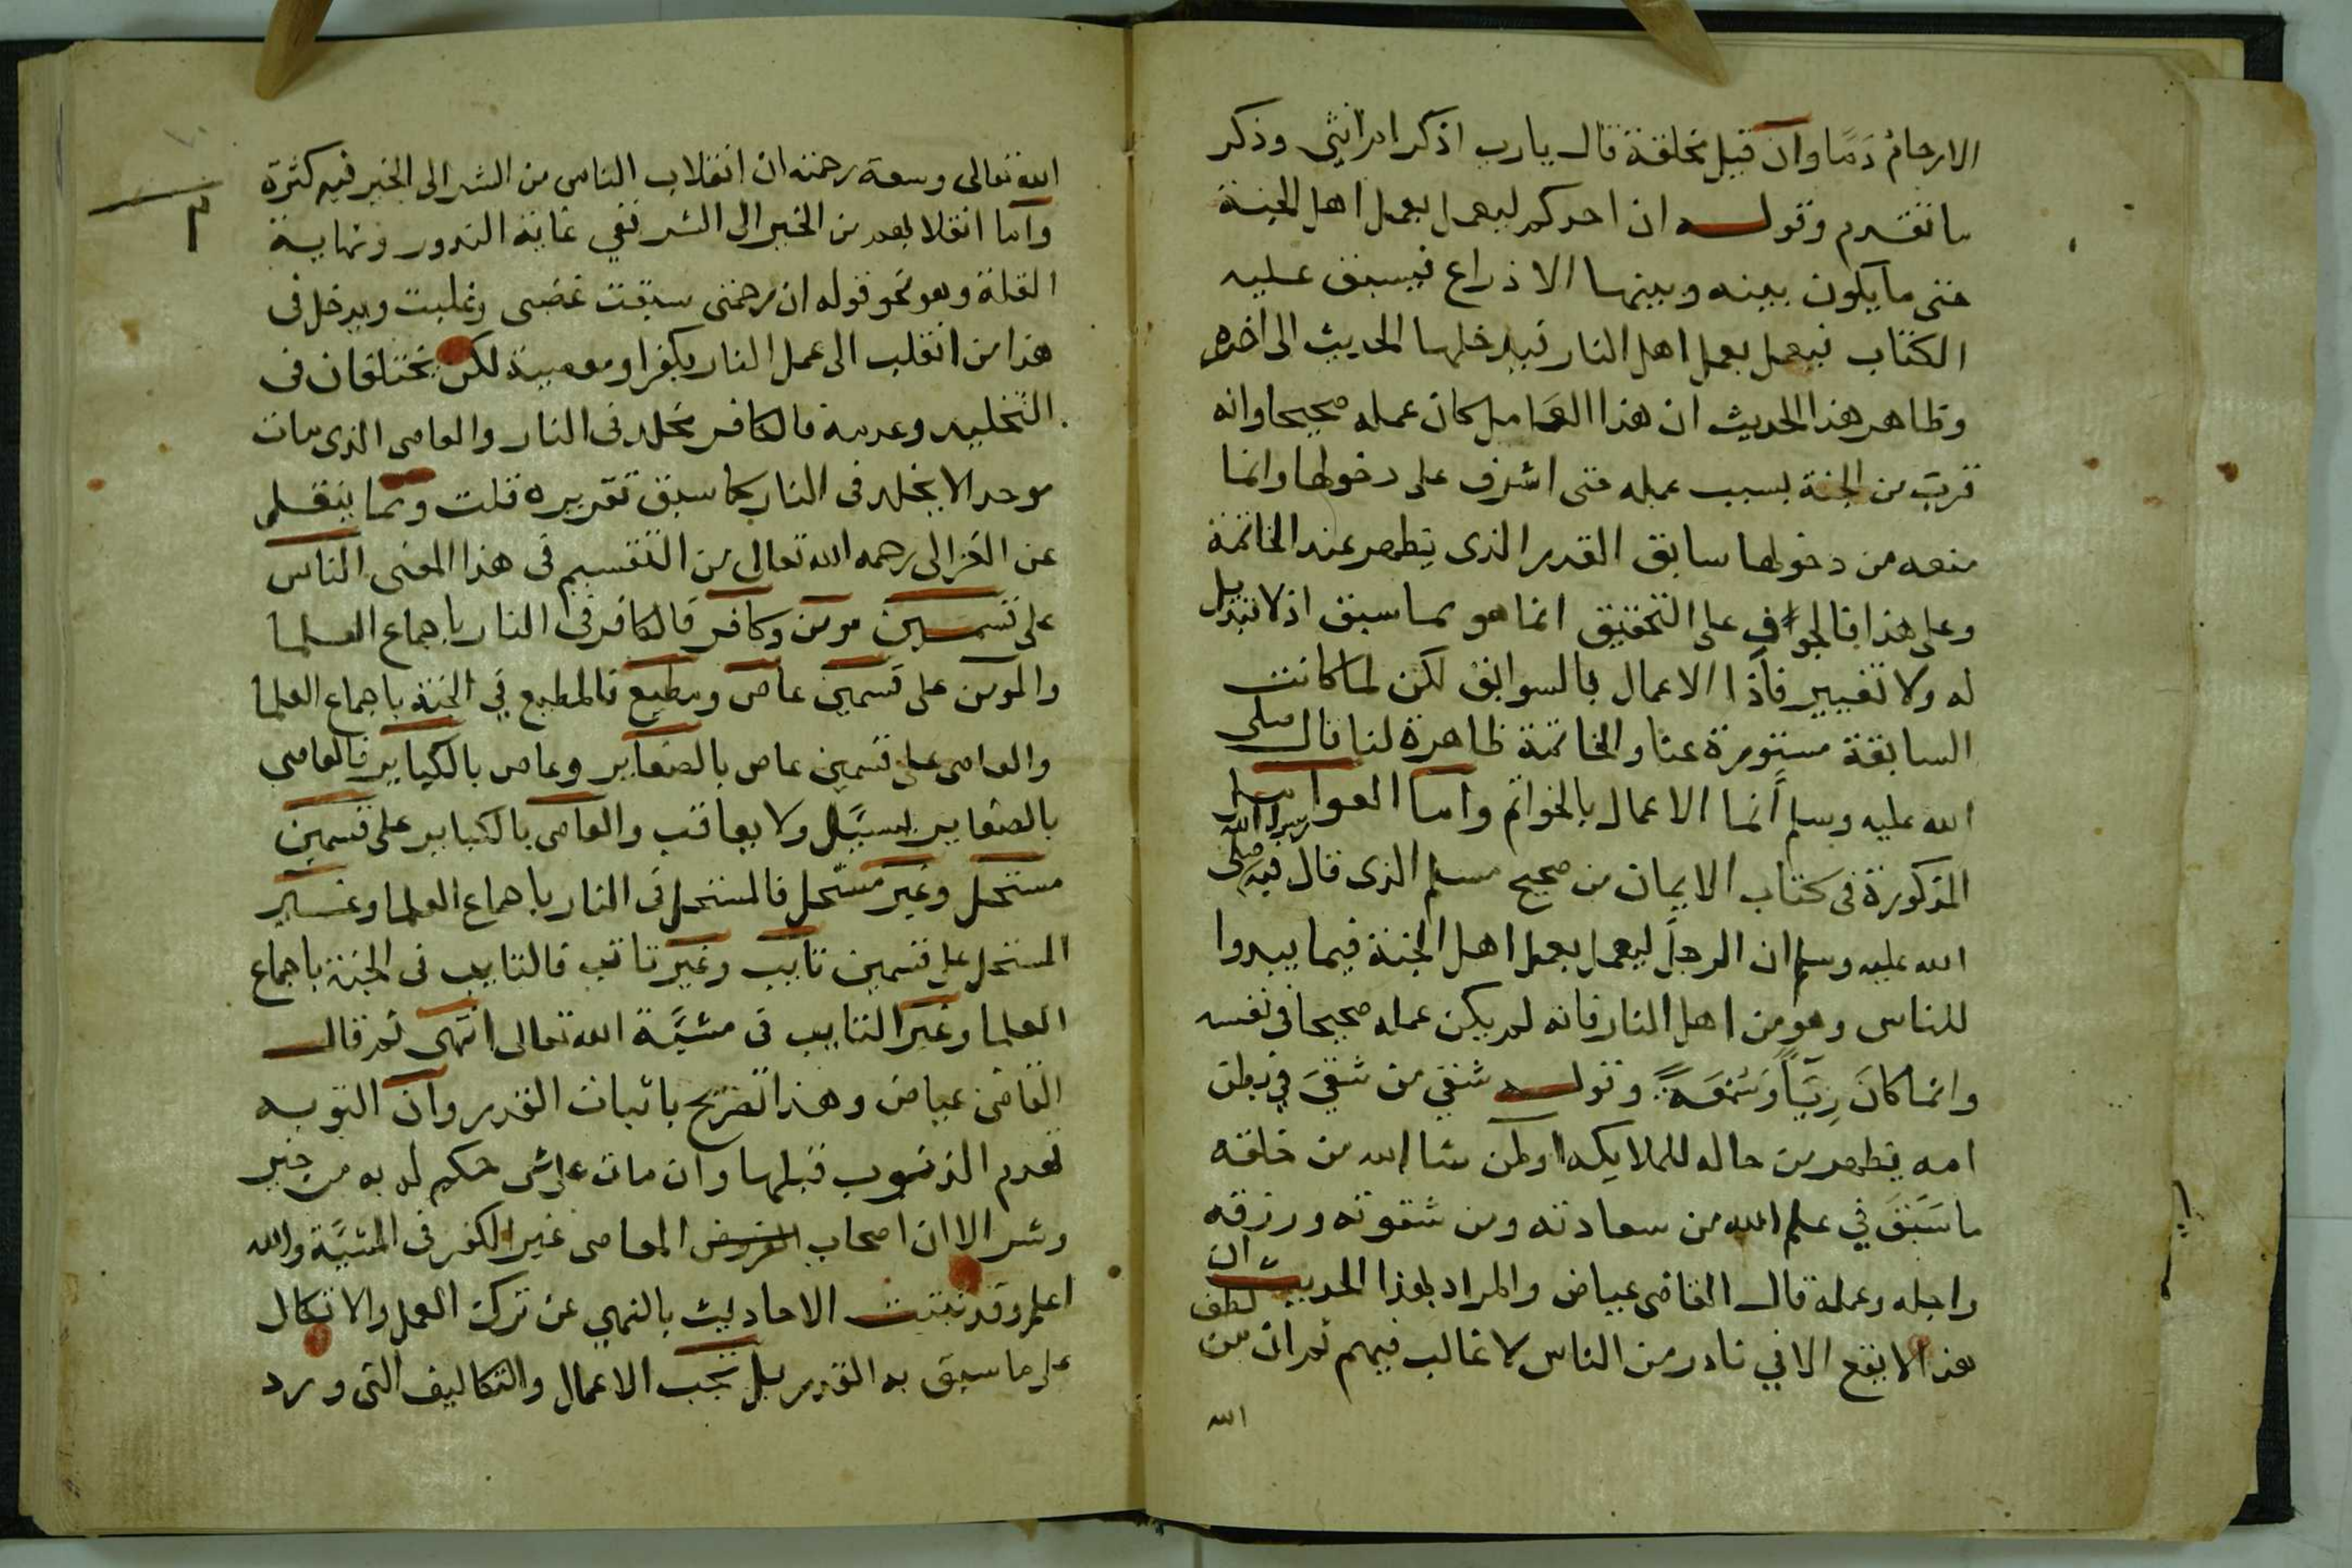 الارحامُ دَمًا وان قيل مخلقة قال يارب اذكر ام انثى وذكر
ما تقدم وقوله ان احدكم ليعمل بعمل اهل الجنة
حتى ما يكون بينه وبينها الا ذراع فيسبق عليه
الكتاب فيعمل بعمل اهل النار فيدخلها الحديث الى اخره
وظاهر هذا الحديث ان هذا العامل كان عمله صحيحا وانه
قرب من الجنة بسبب عمله حتى اشرف على دخولها وانما
منعه من دخولها سابق القدر الذى يظهر عند الخاتمة
وعلى هذا فالخواف على التحقيق انما هو مما سبق اذ لا تبديل
له ولا تغيير فاذًا الاعمال بالسوابق لكن لما كانت
السابقة مستورة عنا والخاتمة ظاهرة لنا قال صلى
الله عليه وسلم انما الاعمال بالخواتم واما العوا
المذكورة فى كتاب الايمان من صحيح مسلم الذى قال فيه رسول الله صلى
الله عليه وسلم ان الرجل ليعمل بعمل اهل الجنة فيما يبدوا
للناس وهو من اهل النار فانه لم يكن عمله صحيحا فى نفسه
وانما كانَ رِيَآً وَسُمْعَةً وقوله شقى من شقىَ فى بطن
امه يظهر من حاله للملايكه اولمن شا الله من خلقه
ما سَبَقَ في علم الله من سعادته ومن شقوته ورزقه
واجله وعمله قال القاضى عياض والمراد بهذا الحديث ان
هذا لا يقع الا في نادر من الناس لا غالب فيهم ثم ان من لطف
الله
الله تعالى وسعة رحمته ان انقلاب الناس من الشر الى الخير فيه كثرة
واما انقلابهم من الخير الى الشر ففي غاية الندور ونهاية
القلة وهو نحو قوله ان رحمتى سبقت غضبى وغلبت ويدخل فى
هذا من انقلب الى عمل النار بكفر او معصية لكن يختلفان فى
التخليد وعدمه فالكافر يخلد فى النار والعاصى الذى مات
موحدا لا يخلد فى النار كما سبق تقريره قلت ومما ينقل
عن الغزالى رحمه الله تعالى من التقسيم فى هذا المعنى الناس
على قسمين مومن وكافر فالكافر فى النار باجماع العلما
والمومن على قسمين عاص ومطيع فالمطيع في الجنة باجماع العلما
والعاصى على قسمين عاص بالصغاير وعاص بالكباير فالعاصى
بالصغاير يسيَّل ولا يعاقب والعاصى بالكباير على قسمين
مستحل وغير مستحل فالمستحل فى النار باجماع العلما وغير
المستحل على قسمين تايب وغير تائب فالتايب فى الجنة باجماع
العلما وغير التايب فى مشيَّة الله تعالى انتهى ثم قال
القاضى عياض وهذا تصريح باثبات القدر وان التوبه
تهدم الذنوب قبلها وان مات على شى حكم له به من خير
وشر الا ان اصحاب المعاصى غير الكفر فى المشيَّة والله
اعلم وقد ثبتت الاحاديث بالنهى عن ترك العمل والاتكال
على ما سبق به القدر بل تجب الاعمال والتكاليف التى ورد